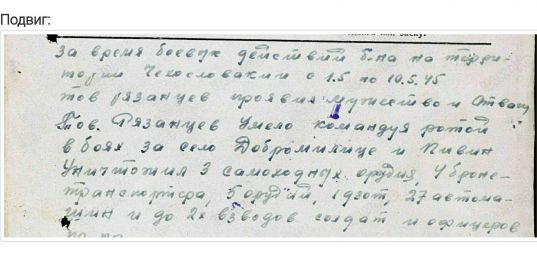 Подвиг:
За время боевых действий б-на на терри-
тории Чехословакии с 1.5 по 10.5.45
тов Рязанцев проявил мужество и отвагу
Тов. Рязанцев умело командуя ротой
в боях за село Добромилице и Пивин
уничтожил 3 самоходных орудия, 4 броне-
транспортера, 5 орудий, 1 дзот, 27 автома-
шин и до 2х взводов солдат и офицеров